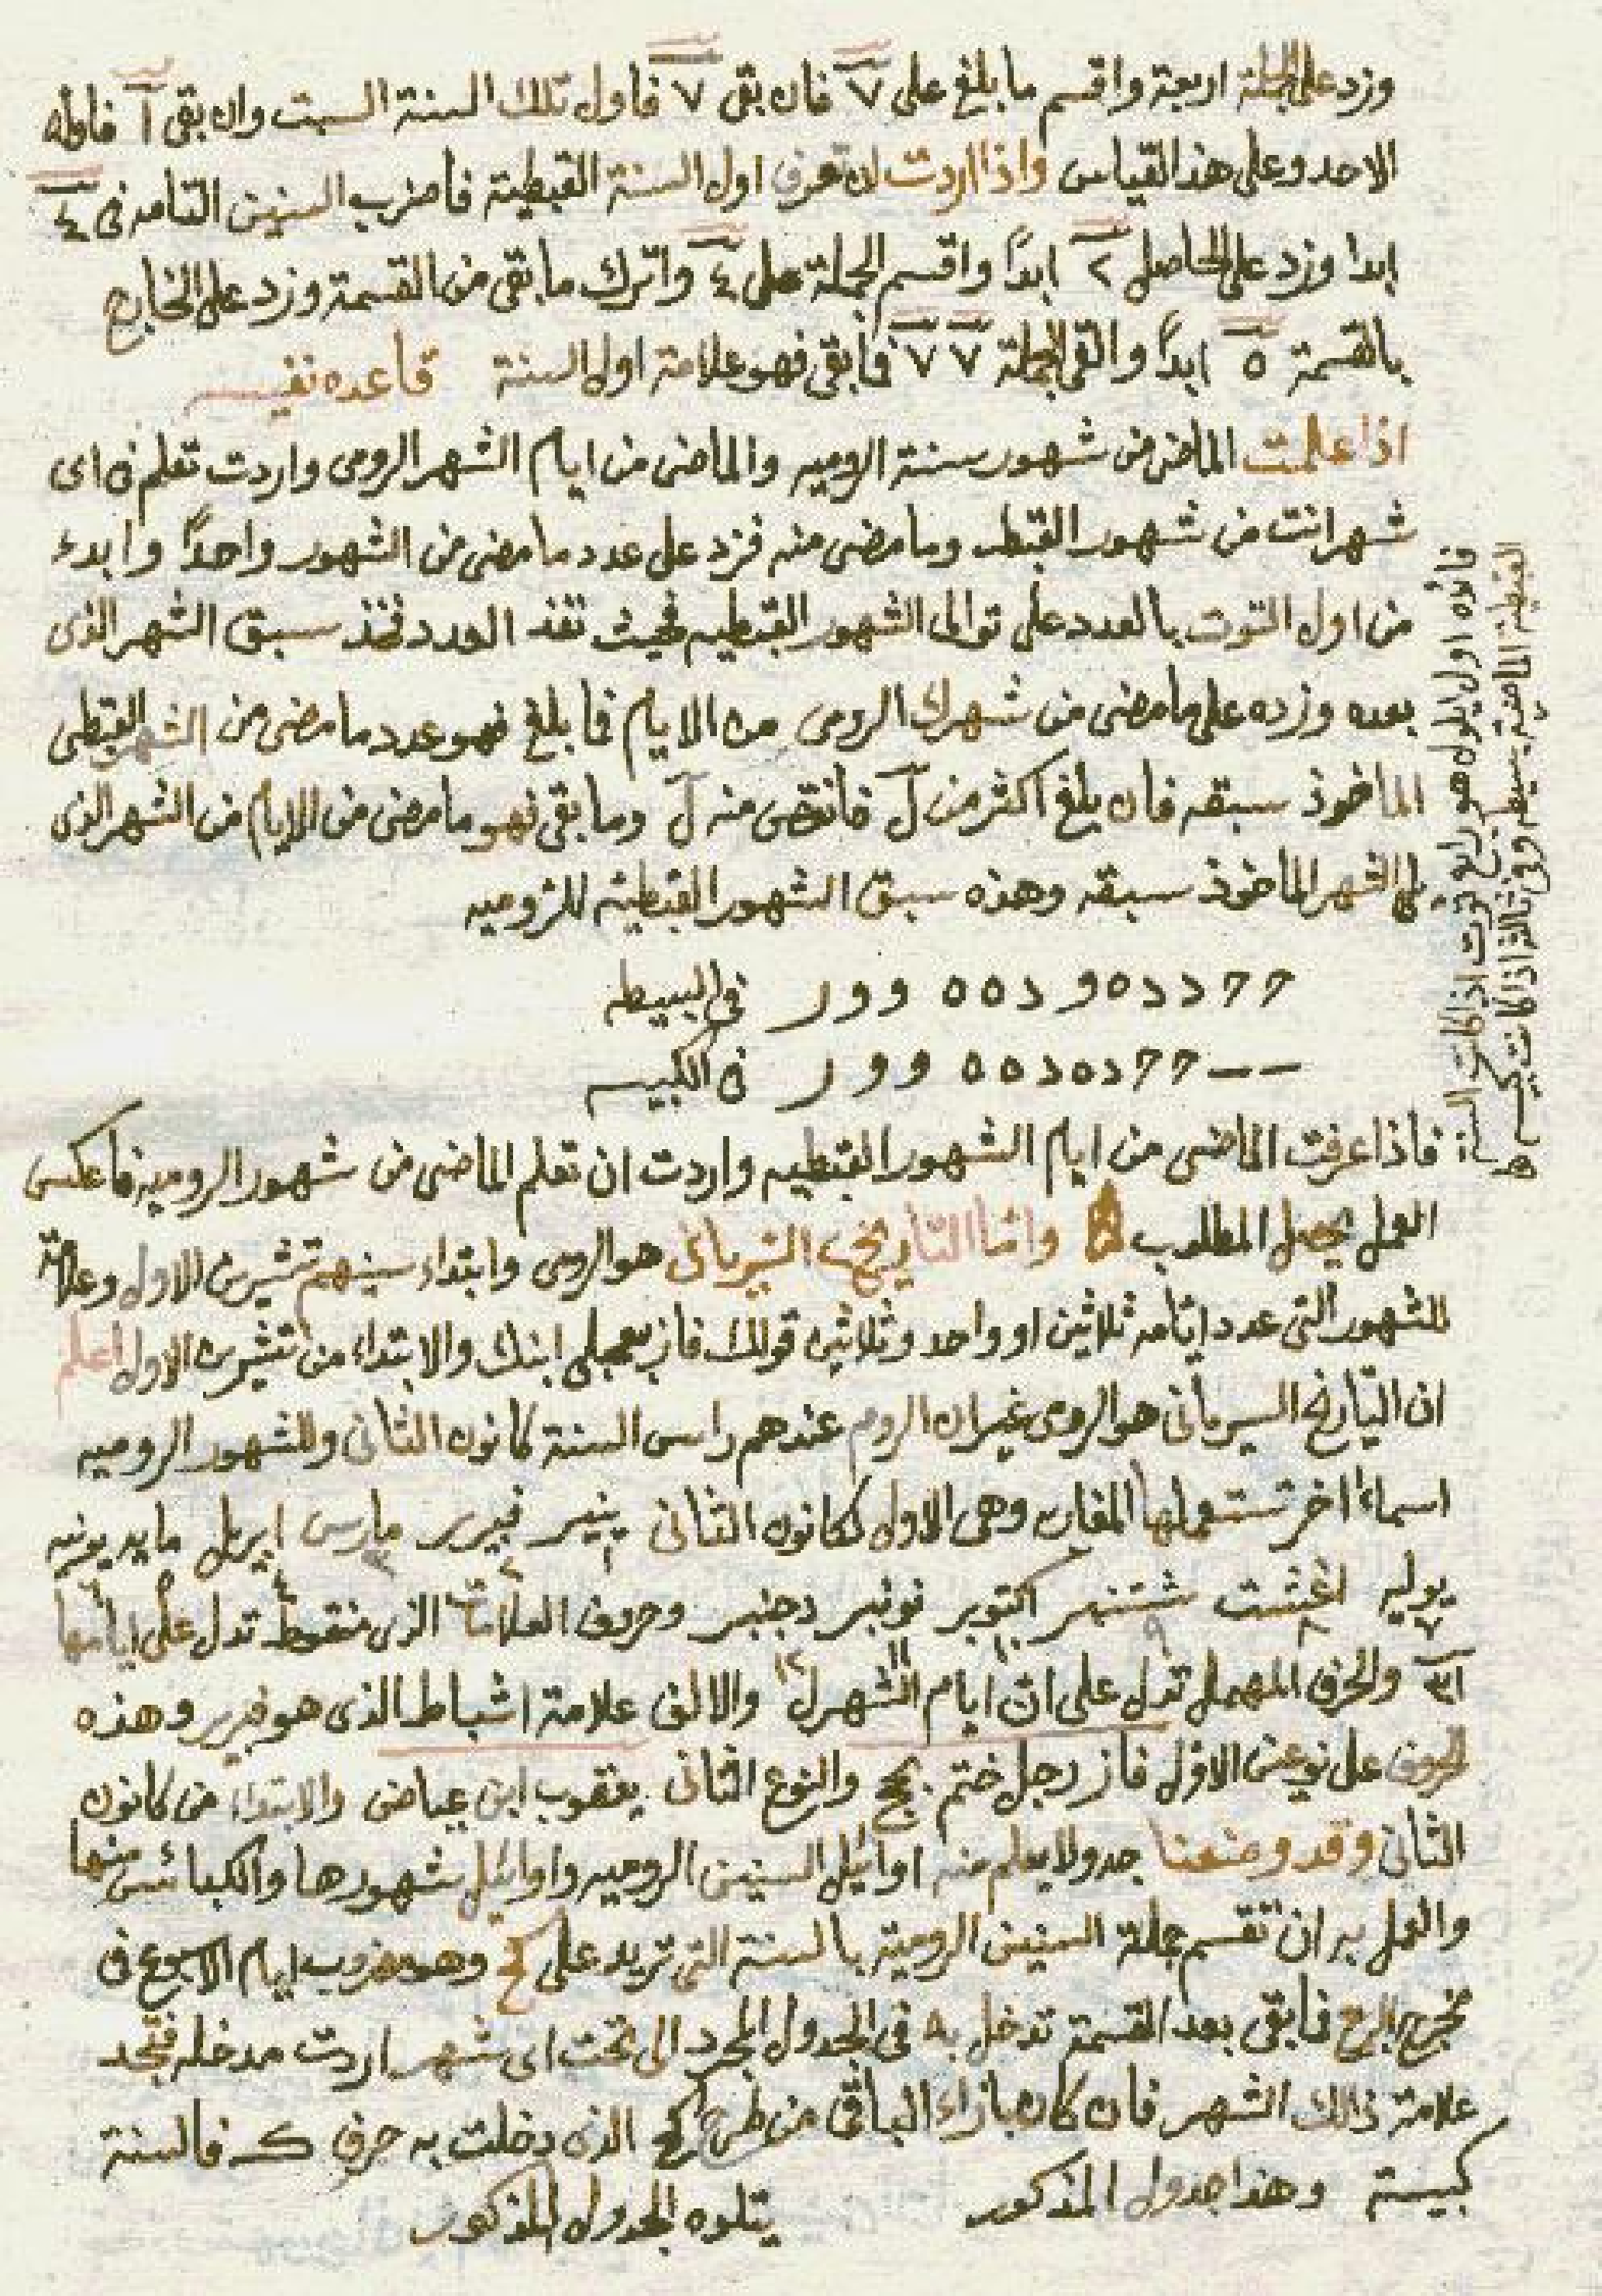 وزد على الجملة اربعة واقسم ما بلغ على ٧ فان بقى ٧ فاول تلك السنة السبت وان بقى آ فاوله
الاحد وعلى هذا القياس واذا اردت ان تعرف اول السنة القبطية فاضرب السنين التامه فى ٤
ابدا وزد على الحاصل ٢ ابدًا واقسم الجملة على ٤ واترك ما بقى من القسمة وزد على الخارج
بالقسمة ٥ ابدًا والق الجملة ٧ ٧ فما بقى فهو علامة اول السنة قاعده نفيسه
اذا علمت الماضى من شهور سنة الروميه والماضى من ايام الشهر الرومى واردت تعلم فى اى
شهر انت من شهور القبط وما مضى منه فزد على عدد ما مضى من الشهور واحدًا وابدء
من اول التوت بالعدد على توالى الشهور القبطيه فحيث نفذ العدد فخذ سبق الشهر الذى
بعده وزده على ما مضى من شهرك الرومى من الايام فما بلغ فهو عدد ما مضى من الشهر القبطى
الماخوذ سبقه فان بلغ اكثر من لَ فانقص منه لَ وما بقى فهو ما مضى من الايام من الشهر الذى
يلى الشهر الماخوذ سبقه وهذه سبق الشهور القبطيه للروميه
فى البسيطه
فى الكبيسه
فاذا عرفت الماضى من ايام الشهور القبطيه واردت ان تعلم الماضى من شهور الروميه فاعكس
العمل يحصل المطلوب واما التاريخ السريانى هو الرومى وابتداء سنينهم تشرين الاول وعلامة
الشهور التى عدد ايامه ثلاثين او واحد وثلاثين قولك فاز رجل ابنك والابتداء من تشرين الاول اعلم
ان التاريخ السريانى هو الرومى غير ان الروم عندهم راس السنة كانون الثانى وللشهور الروميه
اسماء اخر تستعملها المغاربه وهى الاول ككانون الثانى ينير فبرير مارس ابريل مايه يونيه
يوليه اغشت شتنبر اكتوبر نونبر دجنبر وحروف العلامات الذى منقوط تدل على ايامها
٣١ والحرف المهمل تدل على ان ايام الشهر ل والالف علامة اشباط الذى هو فبرير وهذه
الحروف على نوعين الاول فاز رجل ختم بحج والنوع الثانى يعقوب ابن عياض والابتداء من كانون
الثانى وقد وضعنا جدولا يعلم منه اوائل السنين الروميه واوائل شهورها والكبائس منها
والعمل به ان تقسم جملة السنين الرومية بالسنة التى تريد على كح وهو مضروب ايام الاسبوع فى
مخرج الربع فما بقى بعد القسمة تدخل به فى الجدول المجرد الى تحت اى شهر اردت مدخله فتجد
علامة ذلك الشهر فان كان بازاء الباقى من طرح كح الذى دخلت به حرف ك فالسنة
كبيسة وهذا جدول المذكور يتلوه الجدول المذكور
فائده اول ايلول هو رابع توت اذا كانت السنة
القبطية الماضية بسيطه وفى ثالثه اذا كانت كبيسه